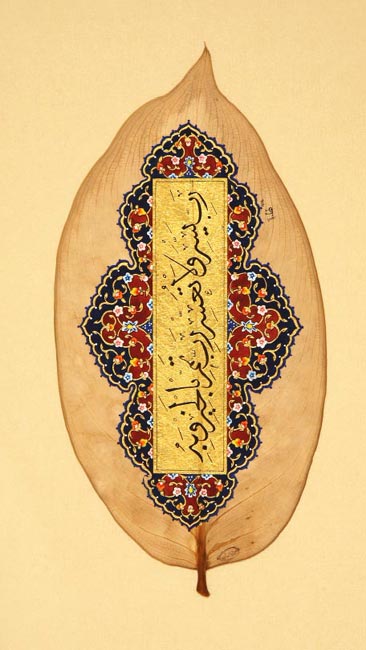 رب يسر ولا تعسر رب تمم بالخير وبه